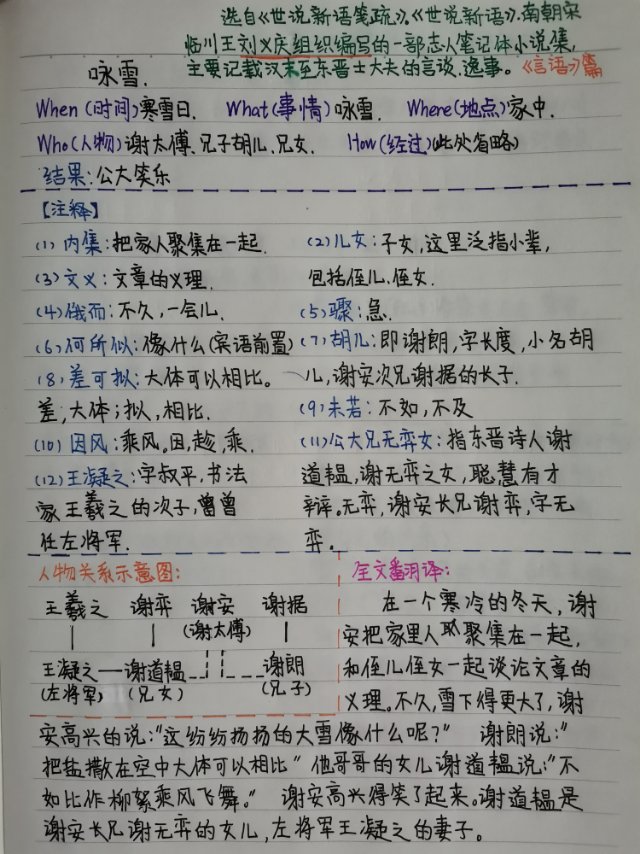 选自《世说新语笺疏》,《世说新语》.南朝宋
临川王刘义庆组织编写的一部志人笔记体小说集,
主要记载汉末至东晋士大夫的言谈、逸事。《言语》篇
咏雪.
When (时间) 寒雪日. What (事情) 咏雪. Where (地点) 家中.
Who (人物) 谢太傅、兄子胡儿、兄女. How (经过) (此处省略)
结果: 公大笑乐
【注释】
(1) 内集: 把家人聚集在一起.
(2) 儿女: 子女, 这里泛指小辈,
包括侄儿、侄女.
(3) 文义: 文章的义理.
(4) 俄而: 不久, 一会儿.
(5) 骤: 急.
(6) 何所似: 像什么 (宾语前置)
(7) 胡儿: 即谢朗, 字长度, 小名胡
儿, 谢安次兄谢据的长子.
(8) 差可拟: 大体可以相比。
差, 大体; 拟, 相比.
(9) 未若: 不如, 不及
(10) 因风: 乘风。因, 趁, 乘.
(11) 公大兄无弈女: 指东晋诗人谢
道韫, 谢无弈之女, 聪慧有才
辩。无弈, 谢安长兄谢弈, 字无
弈。
(12) 王凝之: 字叔平, 书法
家王羲之的次子, 曾曾
任左将军.
人物关系示意图:
王羲之 谢弈 谢安 谢据
(谢太傅)
王凝之——谢道韫 谢朗
(左将军) (兄女) (兄子)
全文翻译:
在一个寒冷的冬天, 谢
安把家里人聚集在一起,
和侄儿侄女一起谈论文章的
义理。不久, 雪下得更大了, 谢
安高兴的说: "这纷纷扬扬的大雪像什么呢?" 谢朗说: "
把盐撒在空中大体可以相比" 他哥哥的女儿谢道韫说: "不
如比作柳絮乘风飞舞。" 谢安高兴得笑了起来。谢道韫是
谢安长兄谢无弈的女儿, 左将军王凝之的妻子。